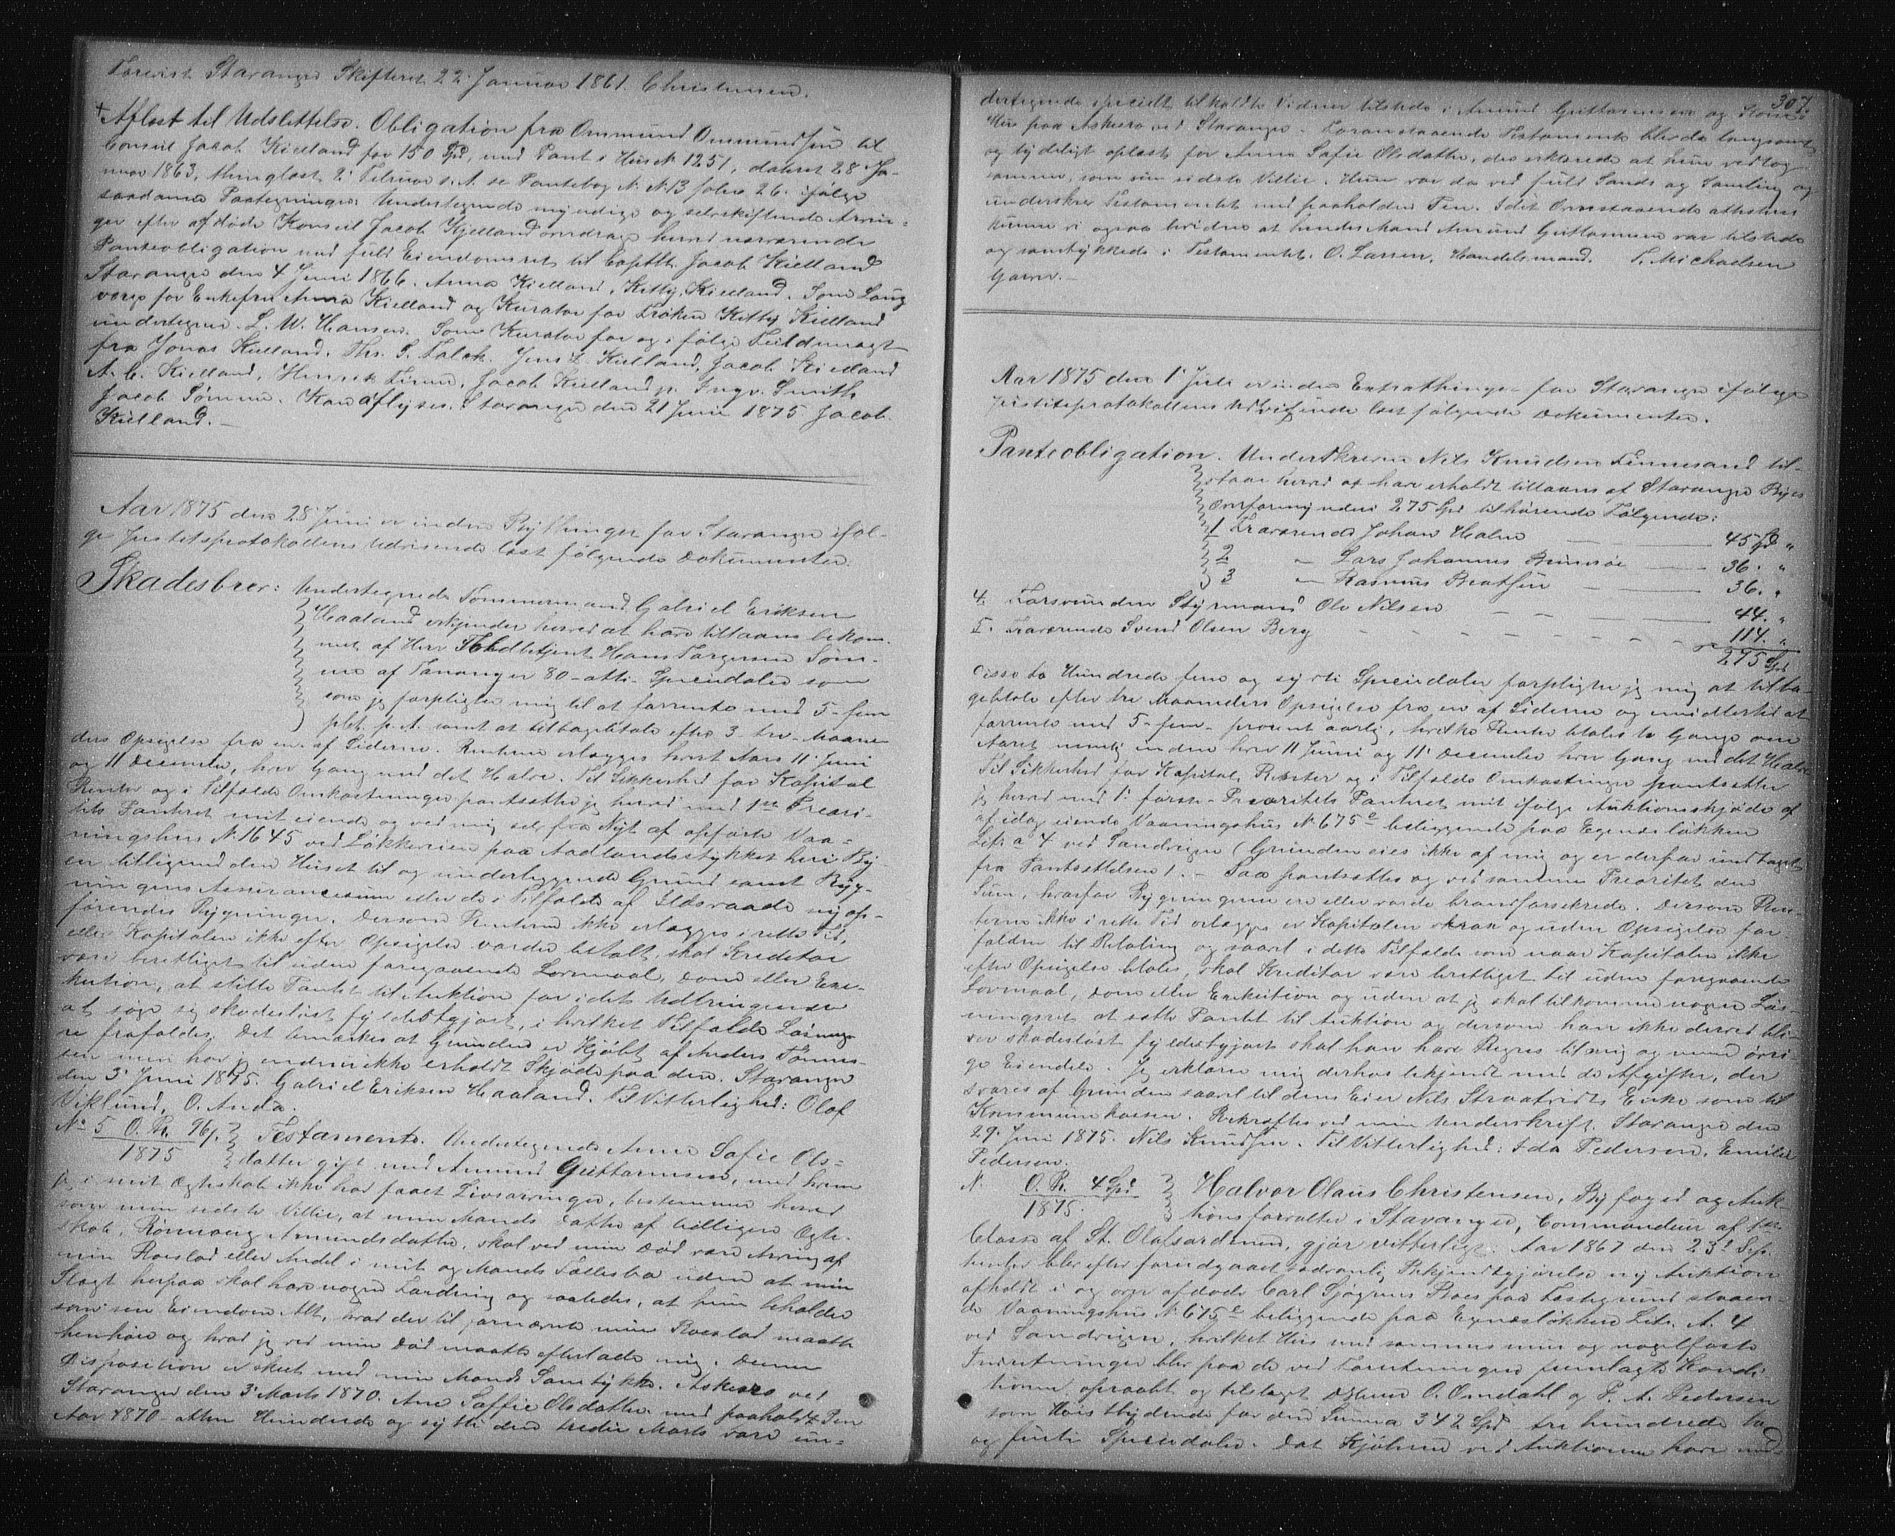 Forevist Stavanger Skifteret 22 Januar 1861. Christensen.
+ Aflæst til Udslettelse. Obligation fra Ommund Ommundsen til
Consul Jacob Kielland for 150 Spd, med Pant i Hus № 1251, dateret 28 Ja-
nuar 1863, thinglæst 2 Februar s. A. se Pantebog N. № 13 folio 26. ifølge
saadanne Paategninger: Undertegnede myndige og selvskiftende Arvin-
ger efter afdøde Konsul Jacob Kjelland overdrage herved nærværende
Panteobligation med fuld Eiendomsret til Capitl. Jacob Kielland
Stavanger den 4 Juni 1866. Anna Kielland, Kitty Kielland. Som Laug
værge for Enkefru Anna Kielland og Kurator for Frøken Kitty Kielland
undertegner L. W. Hansen. Som Kurator for og i følge Fuldmagt
fra Jonas Kielland, Ths. S. Falck. Jens Z. Kielland, Jacob Kielland
A. C. Kielland, Henrik Finne, Jacob Kielland p. Ingv. Smith
Jacob Sømme. Kan aflyses. Stavanger den 21 Juni 1875 Jacob
Kielland.
Aar 1875 den 28 Juni er inden Bythinget for Stavanger iføl-
ge Justitsprotokollens Udvisende læst følgende Dokumenter.
Skadesbrev: Undertegnede Tømmermand Gabriel Eriksen
Haaland erkjender herved at have tillaans bekom-
met af Herr Toldbetjent Hans Torgersen Søm-
me af Tananger 80 - otti - Speciedaler som
som jeg forpligter mig til at forrente med 5 - fem
pCt. p. A. samt at tilbagebetale efter 3 - tre - Maane-
ders Opsigelse fra en af Siderne. Renterne erlægges hvert Aars 11 Juni
og 11 December, hver Gang med det Halve. Til Sikkerhed for Kapital
Renter og i Tilfælde Omkostninger pantsætter jeg herved med 1ste Priori-
tets Panteret mit eiende og ved mig selv fra Nyt af opførte Vaa-
ningshus № 1645 ved Løkkeveien paa Aadlandsstykket heri By-
en tilligemed den Huset til og underliggende Grund samt Byg-
ningens Assurancesum eller de i Tilfælde af Ildsvaade nyop-
førendes Bygninger. Dersom Renterne ikke erlægges i rette Tid,
eller Kapitalen ikke efter Opsigelse vorder betalt, skal Kreditor
være berettiget til uden foregaaende Lovmaal, Dom eller Exe-
kution, at stille Pantet til Auktion for i dets Udbringende
at søge sig skadesløst fyldestgjort, i hvilket Tilfælde Løsnings-
ret frafaldes. Det bemærkes at Grunden er Kjøbt af Anders Tønnes-
sen men har jeg endnu ikke erholdt Skjøde paa den. Stavanger
den 3' Juni 1875. Gabriel Eriksen Haaland. Til Vitterlighed: Olof
Viklund, O. Anda.
№ 5 O. R. 96/. 1875 Testamente. Undertegnede Anne Sofie Ols-
datter gift med Amund Guttormsen, med hvem
jeg i mit Ægteskab ikke har faaet Livsarvinger, bestemmer herved
som min sidste Villie, at min Mands Datter af tidligere Ægte-
skab, Rønnaug Amundsdatter, skal ved min Død være Arving af
min Boeslod eller Andel i mit og Mands Fællesbo uden at min
Slægt herpaa skal have nogen Fordring og saaledes, at hun beholder
som sin Eiendom Alt, hvad der til fornævnte min Boeslod maatte
henhøre og hvad jeg ved min Død maatte efterlade mig. Denne
Disposition er skeet med min Mands Samtykke. Askerø ved
Stavanger den 3' Marts 1870. Ane Saffie Olsdatter med paaholdt Pen
Aar 1870 - atten Hundrede og sytti den tredie Marts vare un-
307.
dertegnede specielt tilkaldte Vidner tilstede i Amund Guttormsens og Kones
Hus paa Askerø ved Stavanger. Foranstaaende Testamente blev da langsomt
og tydeligt oplæst for Anne Safie Olsdatter, der erklærede at hun vedtog
samme, som sin sidste Villie. Hun var da ved fuld Sands og Samling og
underskrev Testamentet med paaholden Pen. I det Ovenstaaende attesteres
kunne vi ogsaa bevidne at hendes Mand Amund Guttormsen var tilstede
og samtykkede i Testamentet. O. Larsen, Handelsmand. T. Michaelsen
Garver. -
Aar 1875 den 1' Juli er inden Extrathinget for Stavanger ifølge
Justitsprotokollens Udvisende læst følgende Dokumenter.
Panteobligation. Underskreven Nils Knudsen Finnesand til-
staar herved at have erholdt tillaans af Stavanger Byes
Overformynderi 275 Spd tilhørende Følgende:
1 Fraværende Johan Halvor 45 Spd "
2 " Lars Johannes Brimsøe 36. "
3 " Rasmus Brathsen 36. "
4. Forsvunden Styrmand Ole Nilsen 44. "
5. Fraværende Svend Olsen Berg 114. "
275 Spd
Disse to Hundrede fem og sytti Speciedaler forpligter jeg mig at tilba-
gebetale efter tre Maaneders Opsigelse fra en af Siderne og imidlertid at
forrente med 5 - fem - procent aarlig, hvilke Renter betales to Gange om
Aaret nemlig inden hver 11 Juni og 11 December hver Gang med det Halve
Til Sikkerhed for Kapital, Renter og i Tilfælde Omkostninger pantsætter
jeg herved med 1' første - Prioritets Panteret mit ifølge Auktionsskjøde af
af idag eiende Vaaningshus № 675e beliggende paa Egenæsløkken
Litr. a 4 ved Sandvigen (Grunden eies ikke af mig og er derfor undtaget
fra Pantsættelsen). - Saa pantsættes og ved samme Prioritet den
Sum, hvorfor Bygningerne ere eller vorde brandforsikrede. Dersom Ren-
terne ikke i rette Tid erlægges er Kapitalen strax og uden Opsigelse for-
falden til Betaling og saavel i dette Tilfælde som naar Kapitalen ikke
efter Opsigelse betales, skal Kreditor være berettiget til uden foregaaende
Lovmaal, Dom eller Exekution og uden at jeg skal tilkomme nogen Løs-
ningsret at sætte Pantet til Auktion og dersom han ikke derved bli-
ver skadesløst fyldestgjort skal han have Regres til mig og mine øvri-
ge Eiendele. Jeg erklærer mig derhos bekjendt med de Afgifter, der
svares af Grunden saavel til dens Eier Nils Straatvedts Enke som til
Kommunekassen. Bekræftes ved min Underskrift. Stavanger den
29. Juni 1875. Nils Knudsen. Til Vitterlighed: Ida Pedersen, Emilie
Pedersen.
№ O. R. 4 Spd 1875. Halvor Olaus Christensen, Byfoged og Auk-
tionsforvalter i Stavanger, Commandeur af 1ste
Classe af St. Olafsordenen, gjør vitterligt: Aar 1867 den 23' Sep-
tember blev efter forudgaaet sædvanlig Bekjendtgjørelse ny Auktion
afholdt i og over afdøde Carl Sjøgrens Boes paa Fæstegrund staaen-
de Vaaningshus № 675e beliggende paa Egnæsløkken Litr. A. 4
ved Sandvigen, hvilket Hus med sammes mur og nagelfaste
Indretninger blev paa de ved Forretningen fremlagte Kondi-
tioner opraabt og tilslaget DHrr O. Omdahl og P. A. Pedersen
som Høistbydende for den Summa 342 Spd tre hundrede to
og firti Speciedaler. Da Kjøberne ved Auktionen have med-